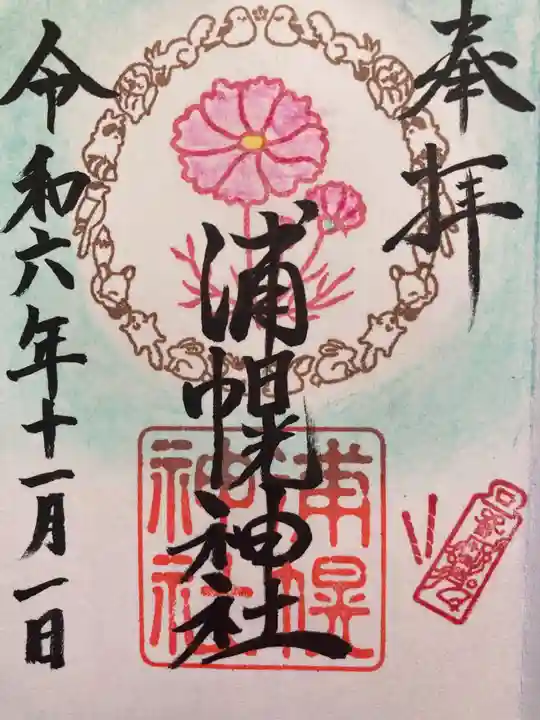 奉拝
浦幌神社
浦幌
神社
令和六年十一月一日